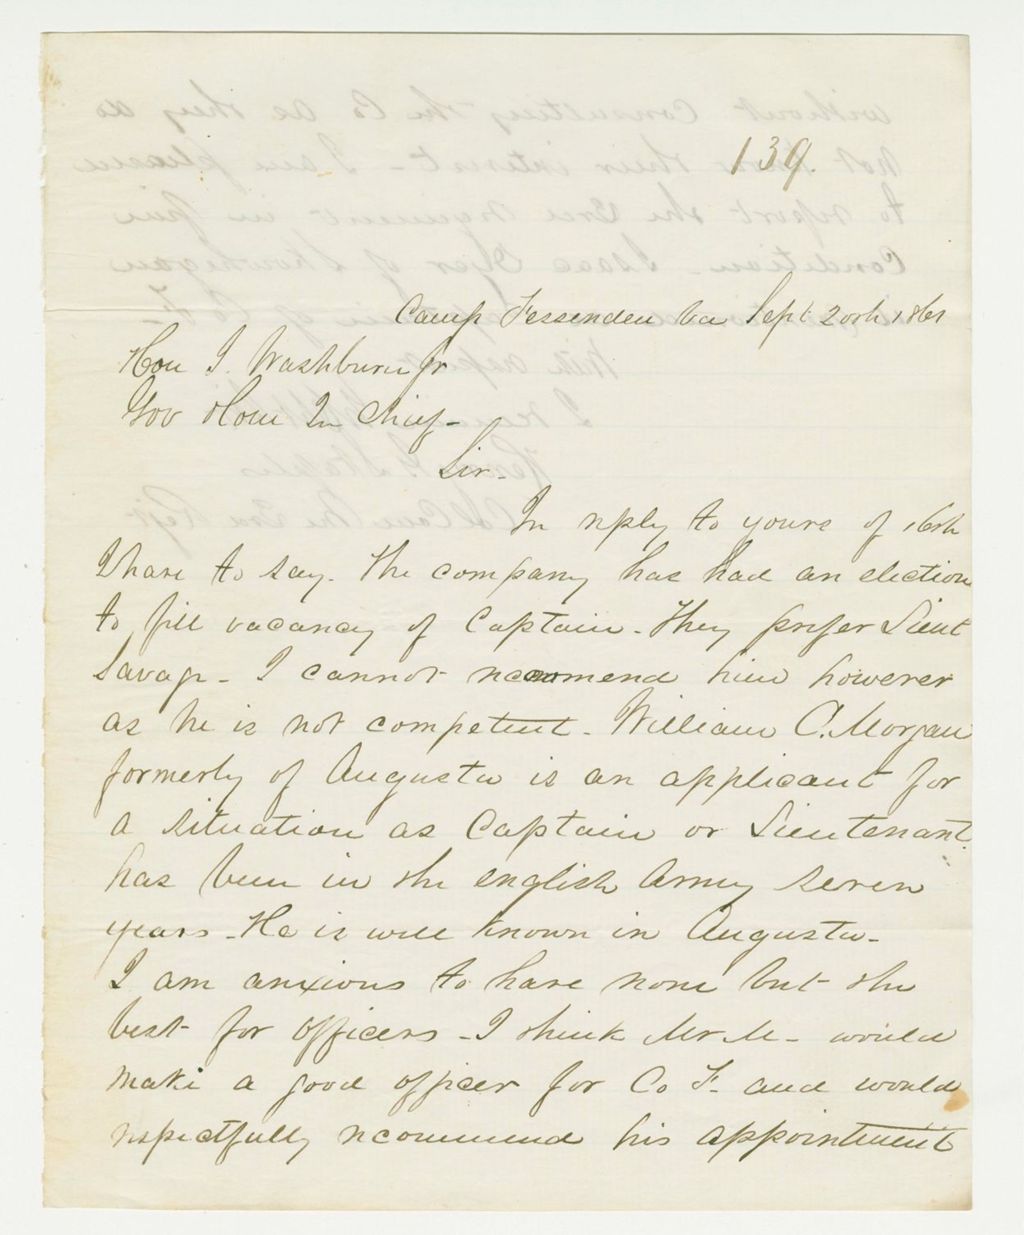 139.
Camp Fessenden Va Sept 20th 1861
Hon I. Washburn Jr
Gov & Com In Chief -
Sir -
In reply to yours of 16th
I have to say. The company has had an election
to fill vacancy of Captain. They prefer Lieut
Savage - I cannot reccomend him however
as he is not competent. William C. Morgan
formerly of Augusta is an applicant for
a situation as Captain or Lieutenant
has been in the english Army seven
years - He is well known in Augusta -
I am anxious to have none but the
best for officers - I think Mr M - would
make a good officer for Co F. and would
respectfully recommend his appointment